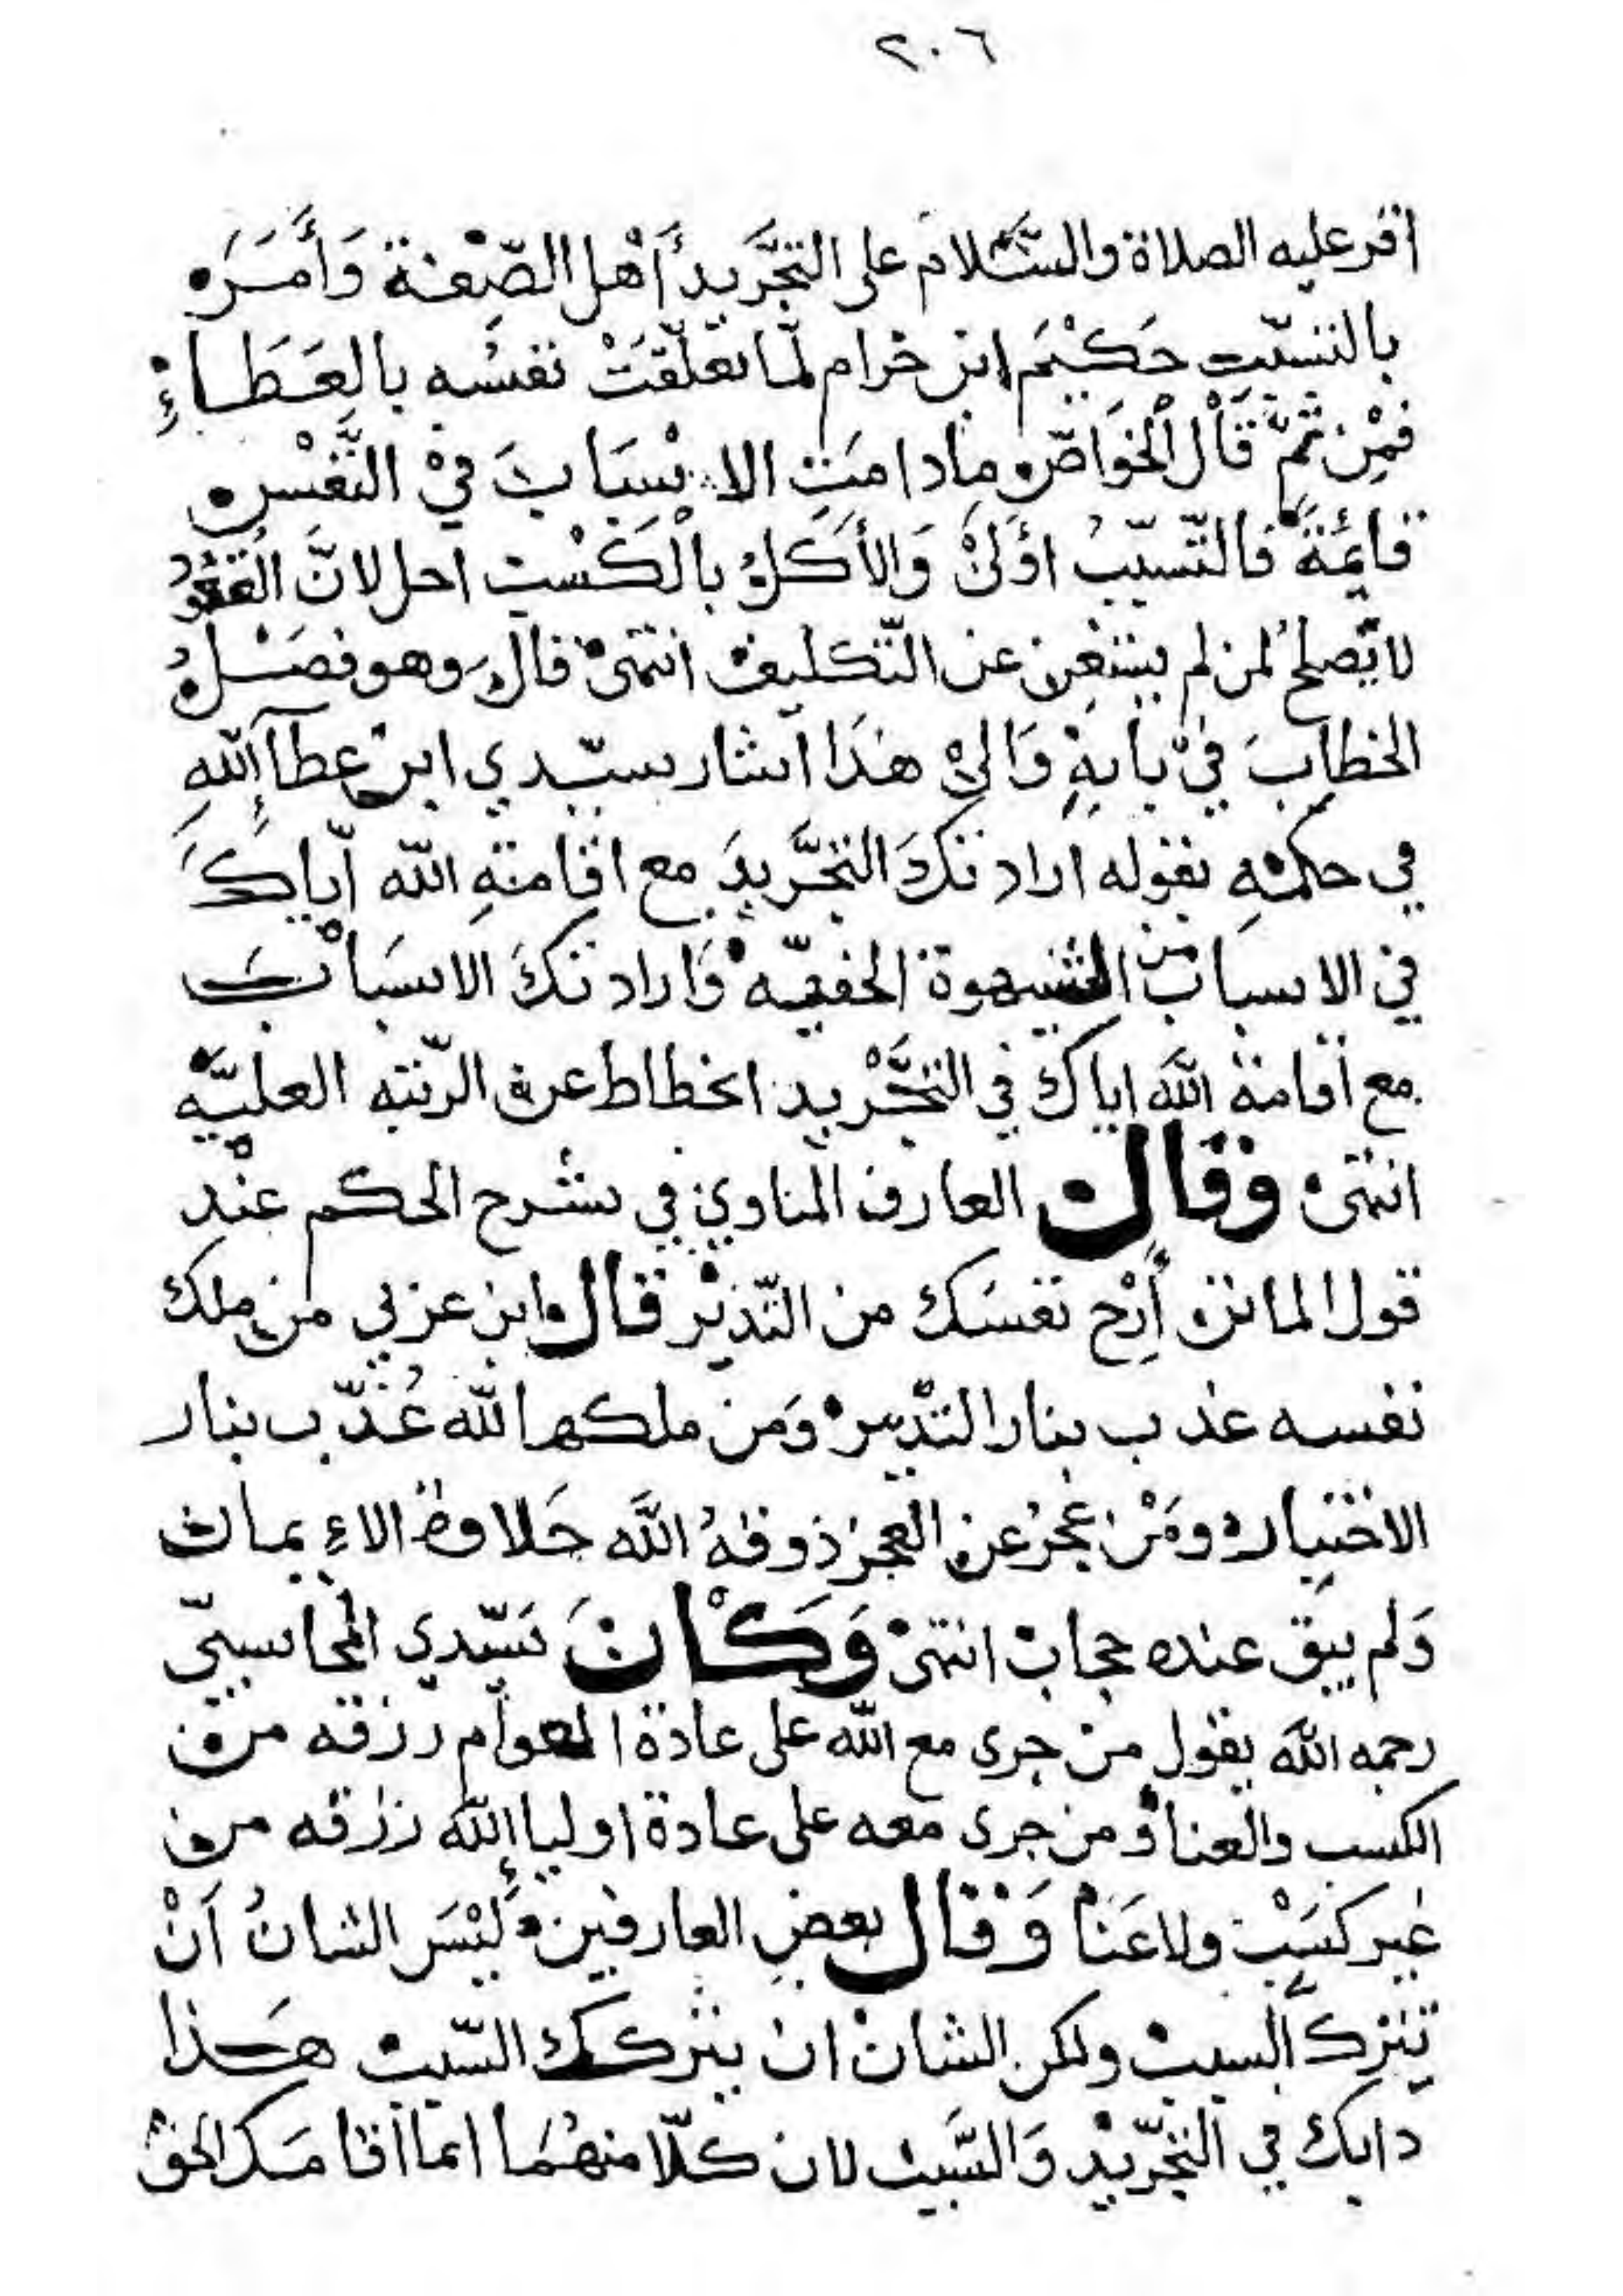 ٢٠٦
اقر عليه الصلاة والسَّلام على التجَّريد أهْل الصِّفة وَأمَرَه
بالتسبّبِ حَكيْم ابن حزام لمّا تعلّقَتْ نفسُه بالعَطَاءِ
فمْن ثمَّ قَال الخَوَاصّ مادامَتِ الاسْبَابَ فيْ النَّفْس
قائمَةً فالتّسبّبُ اوْلىْ وَالأكلُ بالكَسْبِ احل لانَّ القعُودُ
لا يَصلحُ لمن لم يستغن عن التّكليف انتهىْ قالَ وهو فصْلُ
الخطابَ فيْ بابهِ وَالىْ هذَا اشار سيّدي ابن عطآءِ اللهِ
في حكمْهِ بقوله ارادتكَ التجَّريدَ مع اقامتهِ اللّه ايّاكَ
في الاسباب من الشهوة الخفيّهْ وَارادتكَ الاسبَابْ
مع اقامة اللّه اياك في التجَّرْيد انحطاط عن الرّتبه العليَّه
انتهىْ وقال العارف المناوي في شرح الحكم عنْد
قول الماتن أرِحْ نفسَك من التّدبيْر قال ابن عربي من ملك
نفسه عذب بنار التدْبير وَمن ملكها للّه عُذّب بنار
الاختيار ومَنْ عجزَ عن العجز ذوقهُ اللَّه حَلاوة الاءِيمان
وَلم يبق عنده حجابْ انتهىْ وَكَانَ سَيّدي المحاسبيّ
رحمه اللّه يقول من جرى مع اللّه على عادة العوام رزقه من
الكسب والعنا ومن جرى معه على عادة اولياءِ اللّه رزقه من
غير كسَبْ ولا عَنَا وَقال بعض العارفين لَيْسَ الشانُ اَنْ
تترك السببْ ولكن الشانْ ان يتركك السّببْ هَذا
دابك في التجّريْد وَالسَّببْ لان كلّا منهُمَا انما اقامَكَ الحقُّ